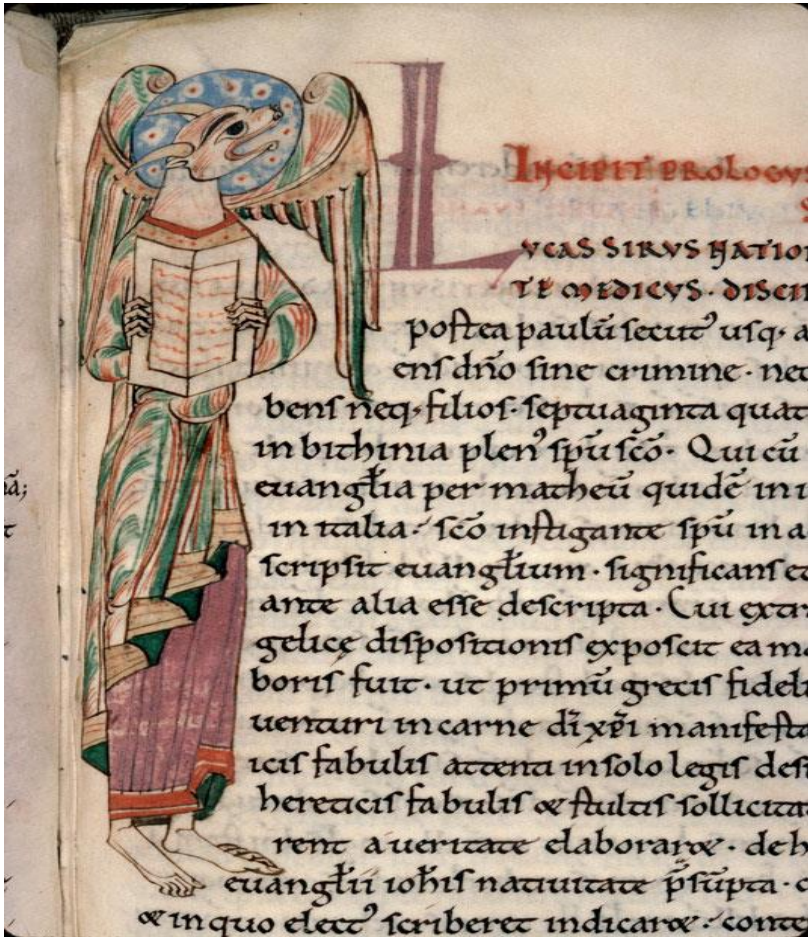 INCIPIT PROLOGVS
LVCAS SIRVS NATION
TE MEDICVS · DISCIP
postea paulū secut᾿ usq; a
ens dn̄o sine crimine · nec
bens neq; filios · septuaginta quat
in bithinia plen᾿ sp̄u sc̄o · Qui cū
euangl̄ia per matheū quidē in i
in italia · sc̄o instigante sp̄u in a
scripsit euangl̄ium · significans et
ante alia esse descripta · Cui extr
gelicę dispositionis exposcit ea ma
boris fuit · ut primū grecis fideli
uenturi in carne dī xp̄i manifesta
icis fabulis attenti in solo legis des
hereticis fabulis & stultis sollicita
rent a ueritate elaborar& · deh
euangl̄ii ioh̄is natiuitate p̄sūpta · c
& in quo elect᾿ scriberet indicar& · conte